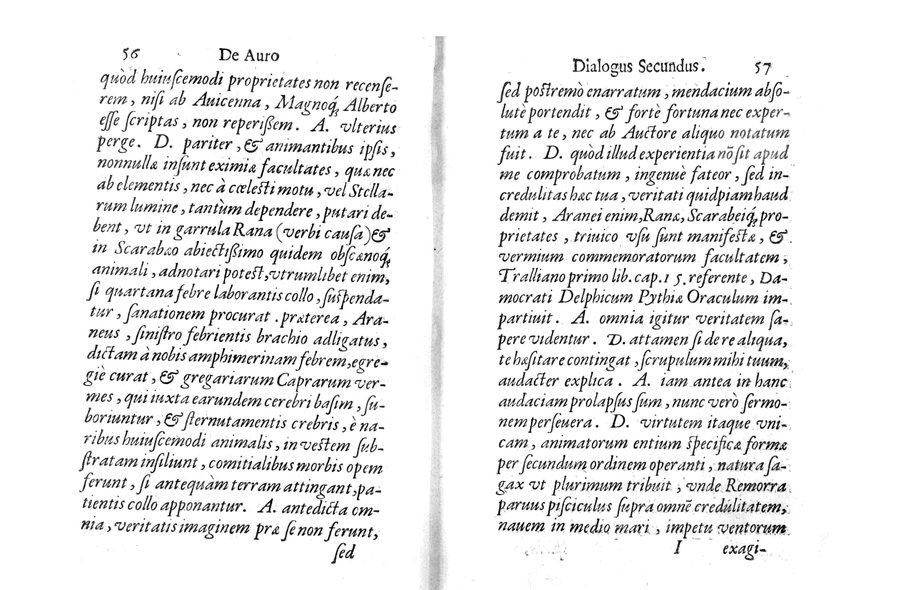 56 De Auro
quòd huiuſcemodi proprietates non recenſe-
rem, niſi ab Auicenna, Magnoq́; Alberto
eſſe ſcriptas, non reperiſſem. A. vlterius
perge. D. pariter, & animantibus ipſis,
nonnullæ inſunt eximiæ facultates, quæ nec
ab elementis, nec à cœleſti motu, vel Stella-
rum lumine, tantùm dependere, putari de-
bent, vt in garrula Rana (verbi cauſa) &
in Scarabæo abiectiſſimo quidem obſcænoq́;
animali, adnotari poteſt, vtrumlibet enim,
ſi quartana febre laborantis collo, ſuſpenda-
tur, ſanationem procurat. præterea, Ara-
neus, ſiniſtro febrientis brachio adligatus,
dictam à nobis amphimerinam febrem, egre-
giè curat, & gregariarum Caprarum ver-
mes, qui iuxta earundem cerebri baſim, ſu-
boriuntur, & ſternutamentis crebris, è na-
ribus huiuſcemodi animalis, in veſtem ſub-
ſtratam inſiliunt, comitialibus morbis opem
ferunt, ſi antequàm terram attingant, pa-
tientis collo apponantur. A. antedicta om-
nia, veritatis imaginem præ ſe non ferunt,
ſed
Dialogus Secundus. 57
ſed poſtremò enarratum, mendacium abſo-
lutè portendit, & fortè fortuna nec exper-
tum a te, nec ab Auctore aliquo notatum
fuit. D. quòd illud experientia nõ ſit apud
me comprobatum, ingenuè fateor, ſed in-
credulitas hæc tua, veritati quidpiam haud
demit, Aranei enim, Ranæ, Scarabeiq́; pro-
prietates, triuico vſu ſunt manifeſtæ, &
vermium commemoratorum facultatem,
Tralliano primo lib. cap. 15. referente, Da-
mocrati Delphicum Pythiæ Oraculum im-
partiuit. A. omnia igitur veritatem ſa-
pere videntur. D. attamen ſi de re aliqua,
te hæſitare contingat, ſcrupulum mihi tuum,
audacter explica. A. iam antea in hanc
audaciam prolapſus ſum, nunc verò ſermo-
nem perſeuera. D. virtutem itaque vni-
cam, animatorum entium ſpecificæ formæ
per ſecundum ordinem operanti, natura ſa-
gax vt plurimum tribuit, vnde Remorra
paruus piſciculus ſupra omnē credulitatem,
nauem in medio mari, impetu ventorum
I exagi-